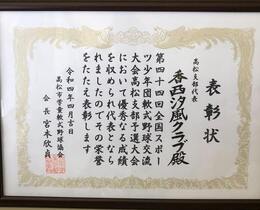 表彰状
高松支部代表
香西汐風クラブ殿
第四十四回全国スポー
ツ少年団軟式野球交流
大会高松支部予選大会
において優秀なる成績
を収められ代表となら
れましたのでその栄誉
をたたえ表彰します
令和四年四月吉日
高松市学童軟式野球協会
会長 宮本欣貞